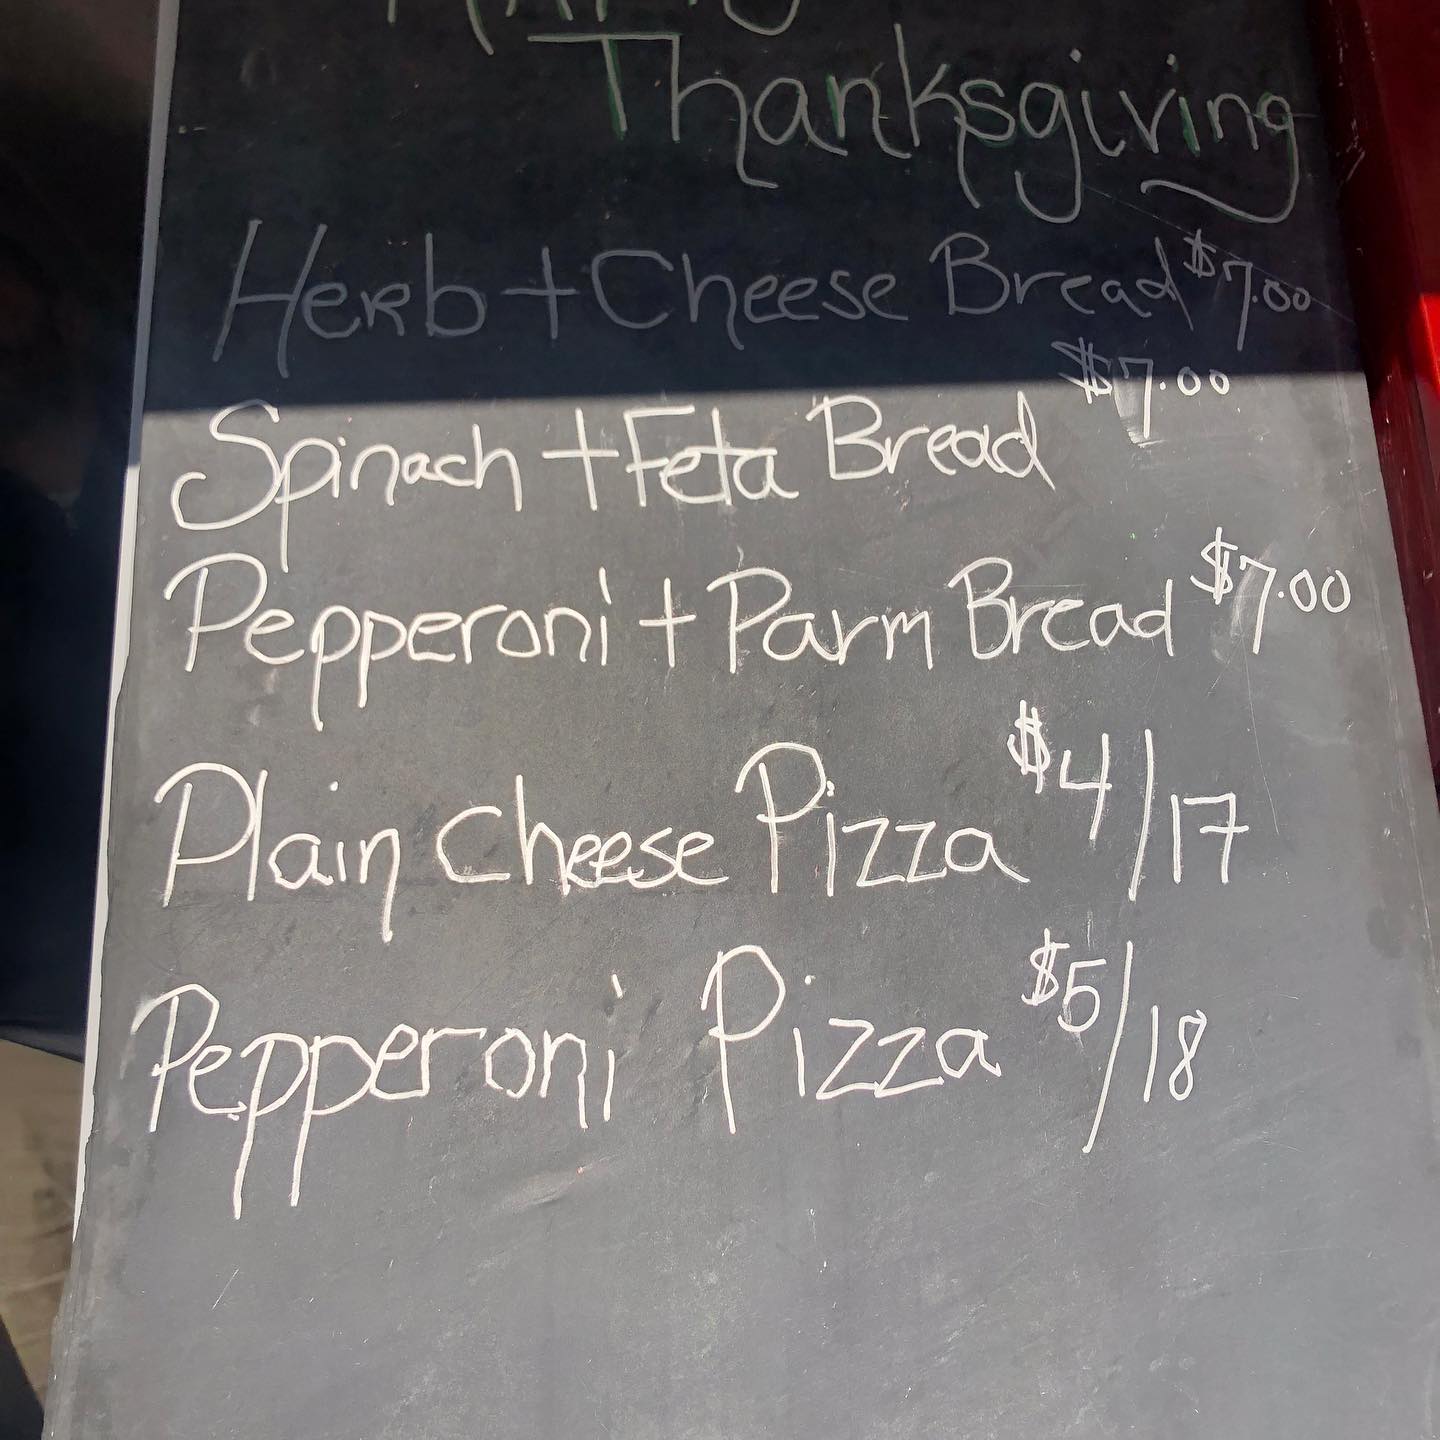 Thanksgiving
Herb + Cheese Bread $7.00
Spinach + Feta Bread $7.00
Pepperoni + Parm Bread $7.00
Plain Cheese Pizza $4/17
Pepperoni Pizza $5/18